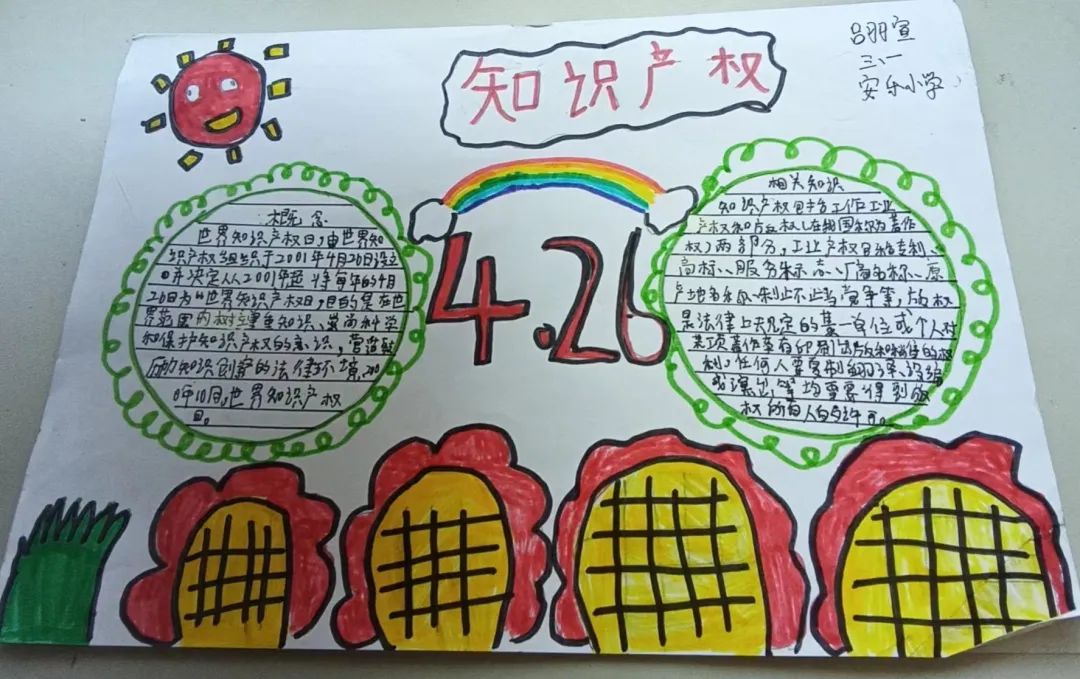 知识产权
吕玥宣
三、一
安乐小学
4.26
概念
世界知识产权日,由世界知
识产权组织于2001年4月26日设立
并决定从2001年起将每年的4月
26日为“世界知识产权日,目的是在世
界范围内树立尊重知识、崇尚科学
和保护知识产权的意识,营造鼓
励知识创新的法律环境,200
0年10月,世界知识产权
日。
相关知识
知识产权包括工作工业
产权和版权(在我国称为著作
权)两部分,工业产权包括专利、
商标、服务标志、厂商名称、原
产地名称、制止不正当竞争等,版权
是法律上规定的某一单位或个人对
某项著作享有印刷出版和销售的权
利,任何人要复制、翻译、改编
或演出等均需要得到版
权所有人的许可。